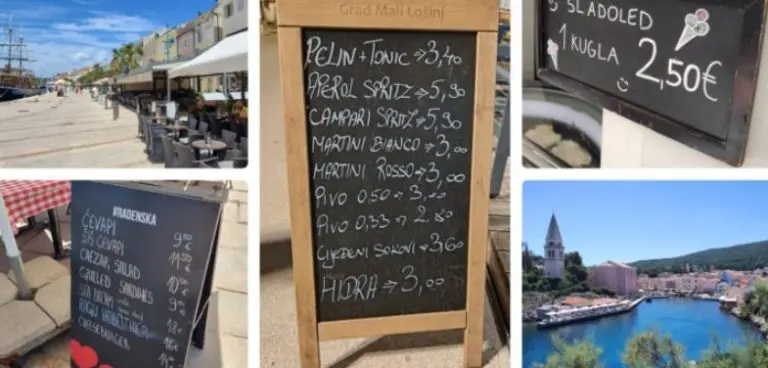 Grad Mali Lošinj
PELIN + TONIC → 3,40
APEROL SPRITZ → 5,90
CAMPARI SPRITZ → 5,90
MARTINI BIANCO → 3,00
MARTINI ROSSO → 3,00
PIVO 0,50 → 3,00
PIVO 0,33 → 2,80
CIJEĐENI SOKOVI → 3,60
HIDRA → 3,00
SLADOLED
1 KUGLA 2,50€
#RADENSKA
ĆEVAPI 9
ŠIŠ ĆEVAPI 11
CAEZAR SALAD
GRILLED SARDINES 10
9
HOBOTNICA 18
CHEESEBURGER